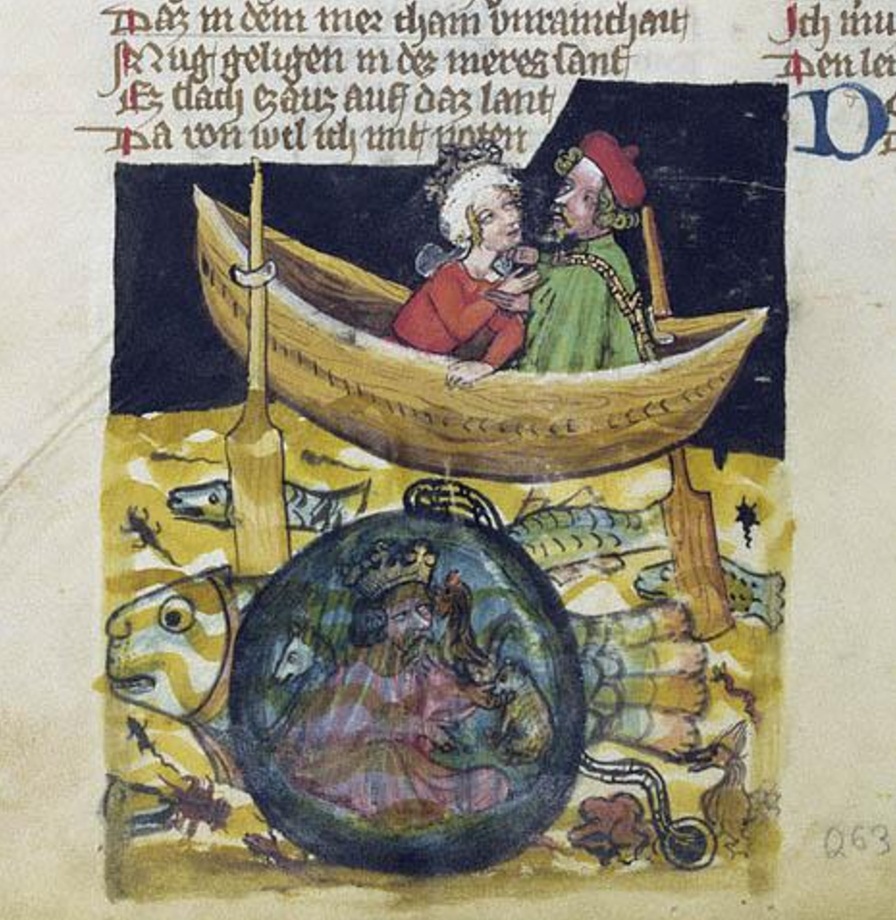 Daz in dem mer cham vnrainchait
Mug geligen in des meres sant
Ez slach ez auz auf daz lant
Da von wil ich mit noten
Ich mu
Den lei
D
263